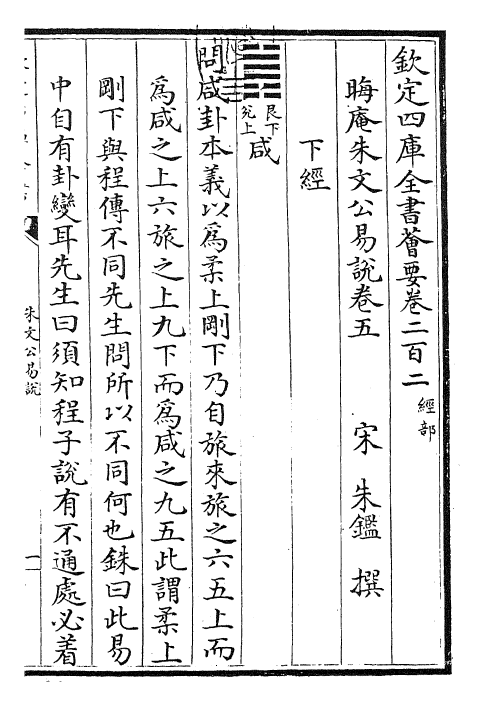 欽定四庫全書薈要卷二百二 經部
晦庵朱文公易說卷五 宋 朱鑑 撰
下經
艮下
兌上
咸
問咸卦本義以為柔上剛下乃自旅來旅之六五上而
為咸之上六旅之上九下而為咸之九五此謂柔上
剛下與程傳不同先生問所以不同何也銖曰此易
中自有卦變耳先生曰須知程子說有不通處必着
朱文公易說
一